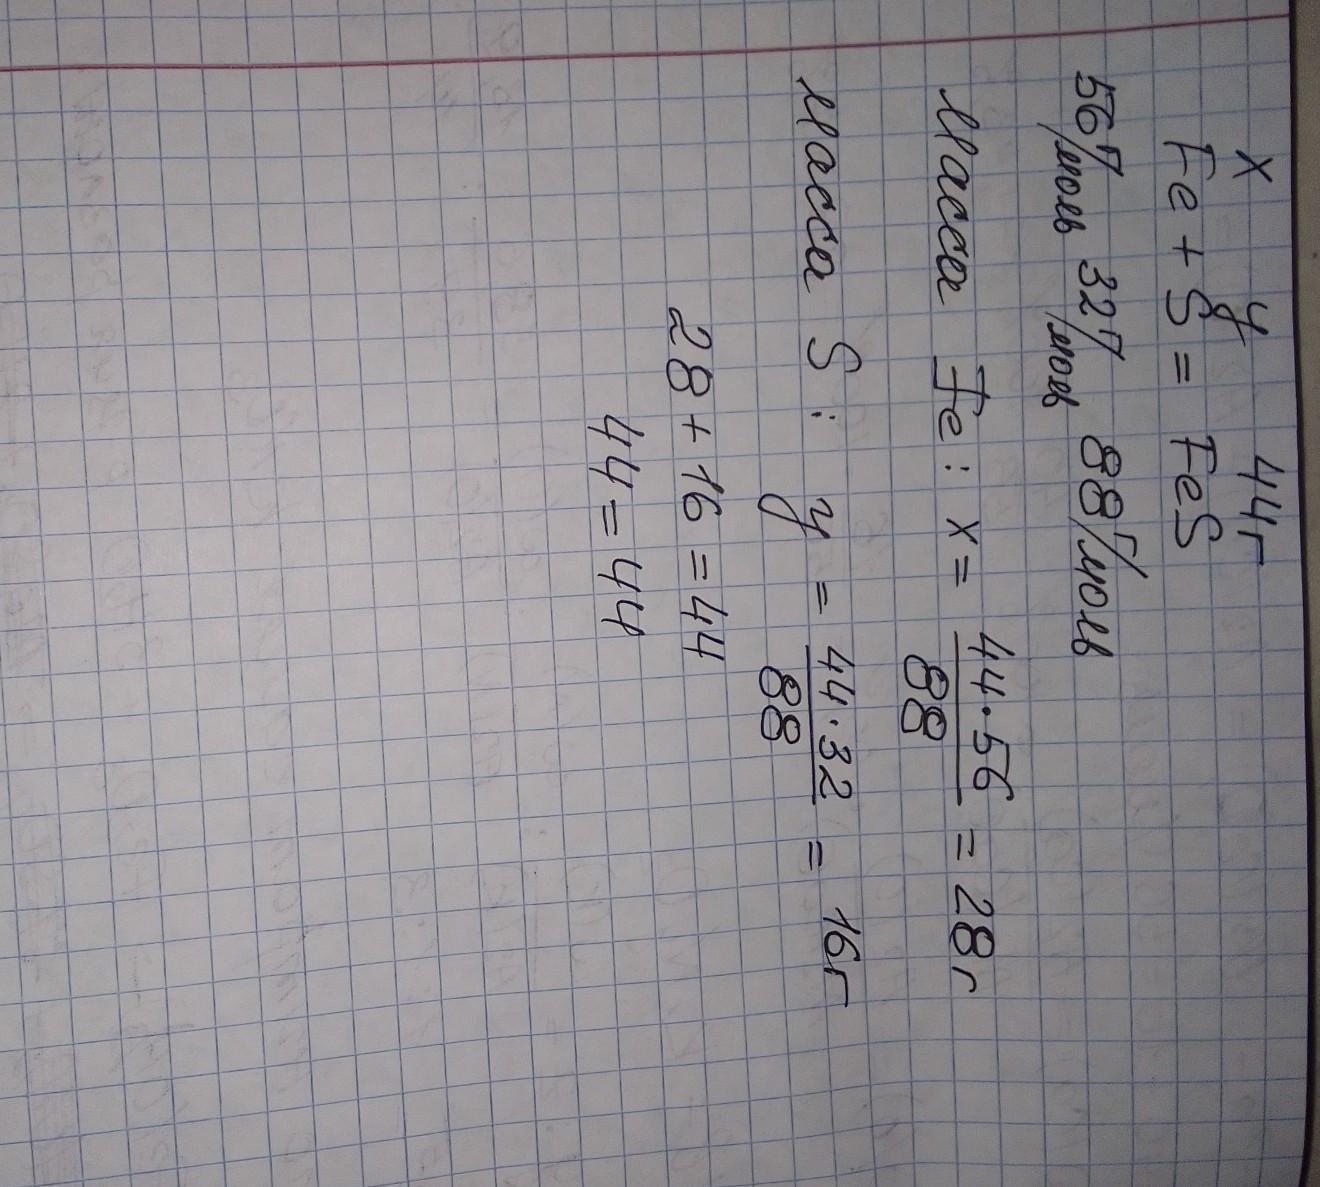 x y 44г
Fe + S = FeS
56 г/моль 32 г/моль 88 г/моль
Масса Fe: x = 44·56/88 = 28 г
Масса S: y = 44·32/88 = 16 г
28 + 16 = 44
44 = 44